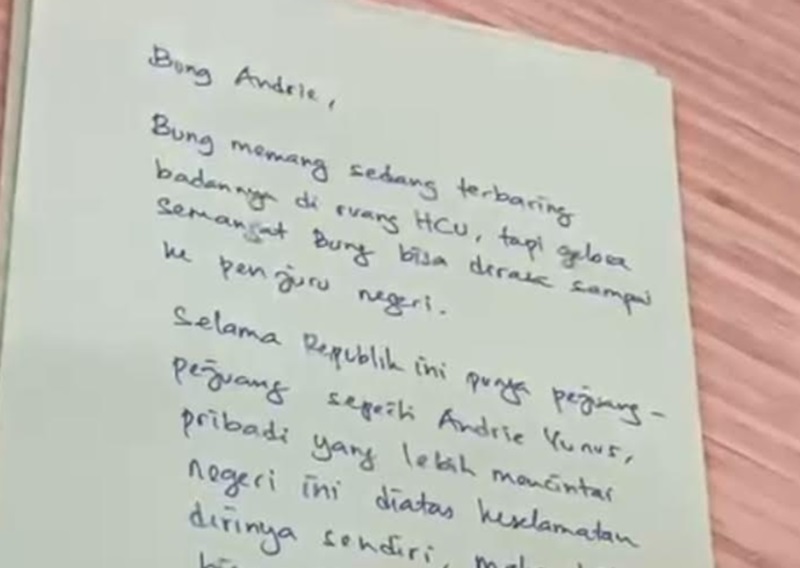 Bung Andrie,
Bung memang sedang terbaring
badannya di ruang HCU, tapi gelora
semangat Bung bisa derasc sampai
ke penjuru negeri.
Selama Republik ini punya pejuang-
pejuang seperti Andrie Yunus,
pribadi yang lebih mencintai
negeri ini diatas keselamatan
dirinya sendiri,